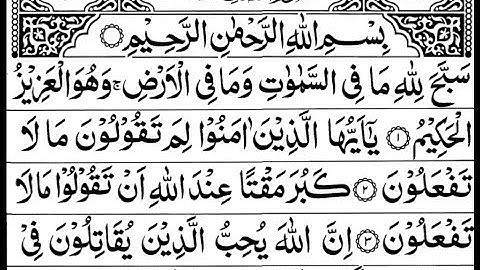 بِسْمِ اللهِ الرَّحْمٰنِ الرَّحِيْمِ
سَبَّحَ لِلّٰهِ مَا فِى السَّمٰوٰتِ وَمَا فِى الْاَرْضِ ۚ وَهُوَ الْعَزِيْزُ
الْحَكِيْمُ ۝۱ يٰۤاَيُّهَا الَّذِيْنَ اٰمَنُوْا لِمَ تَقُوْلُوْنَ مَا لَا
تَفْعَلُوْنَ ۝۲ كَبُرَ مَقْتًا عِنْدَ اللهِ اَنْ تَقُوْلُوْا مَا لَا
تَفْعَلُوْنَ ۝۳ اِنَّ اللهَ يُحِبُّ الَّذِيْنَ يُقَاتِلُوْنَ فِيْ